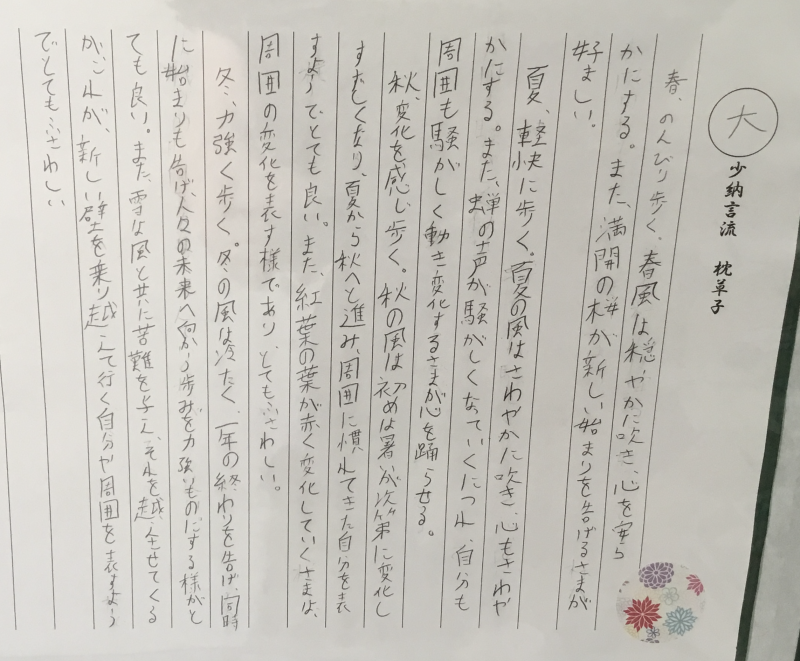 大少納言流 枕草子
春、のんびり歩く、春風は穏やかに吹き、心を安ら
かにする。また、満開の桜が新しい始まりを告げるさまが
好ましい。
夏、軽快に歩く。夏の風はさわやかに吹き、心もさわや
かにする。また、蝉の声が騒がしくなっていくにつれ、自分も
周囲も騒がしく動き変化するさまが心を踊らせる。
秋、変化を感じ歩く。秋の風は初めは暑が次第に変化し
すずしくなり、夏から秋へと進み、周囲に慣れてきた自分を表
すようでとても良い。また、紅葉の葉が赤く変化していくさまは、
周囲の変化を表す様であり、とてもふさわしい。
冬、力強く歩く。冬の風は冷たく、一年の終わりを告げ、同時
に始まりも告げ人々の未来へ向かう歩みを力強いものにする様がと
ても良い。また、雪な風と共に苦難を与え、それを越えさせてくる
がこれが、新しい壁を乗り越えて行く自分や周囲を表すよう
でとてもふさわしい